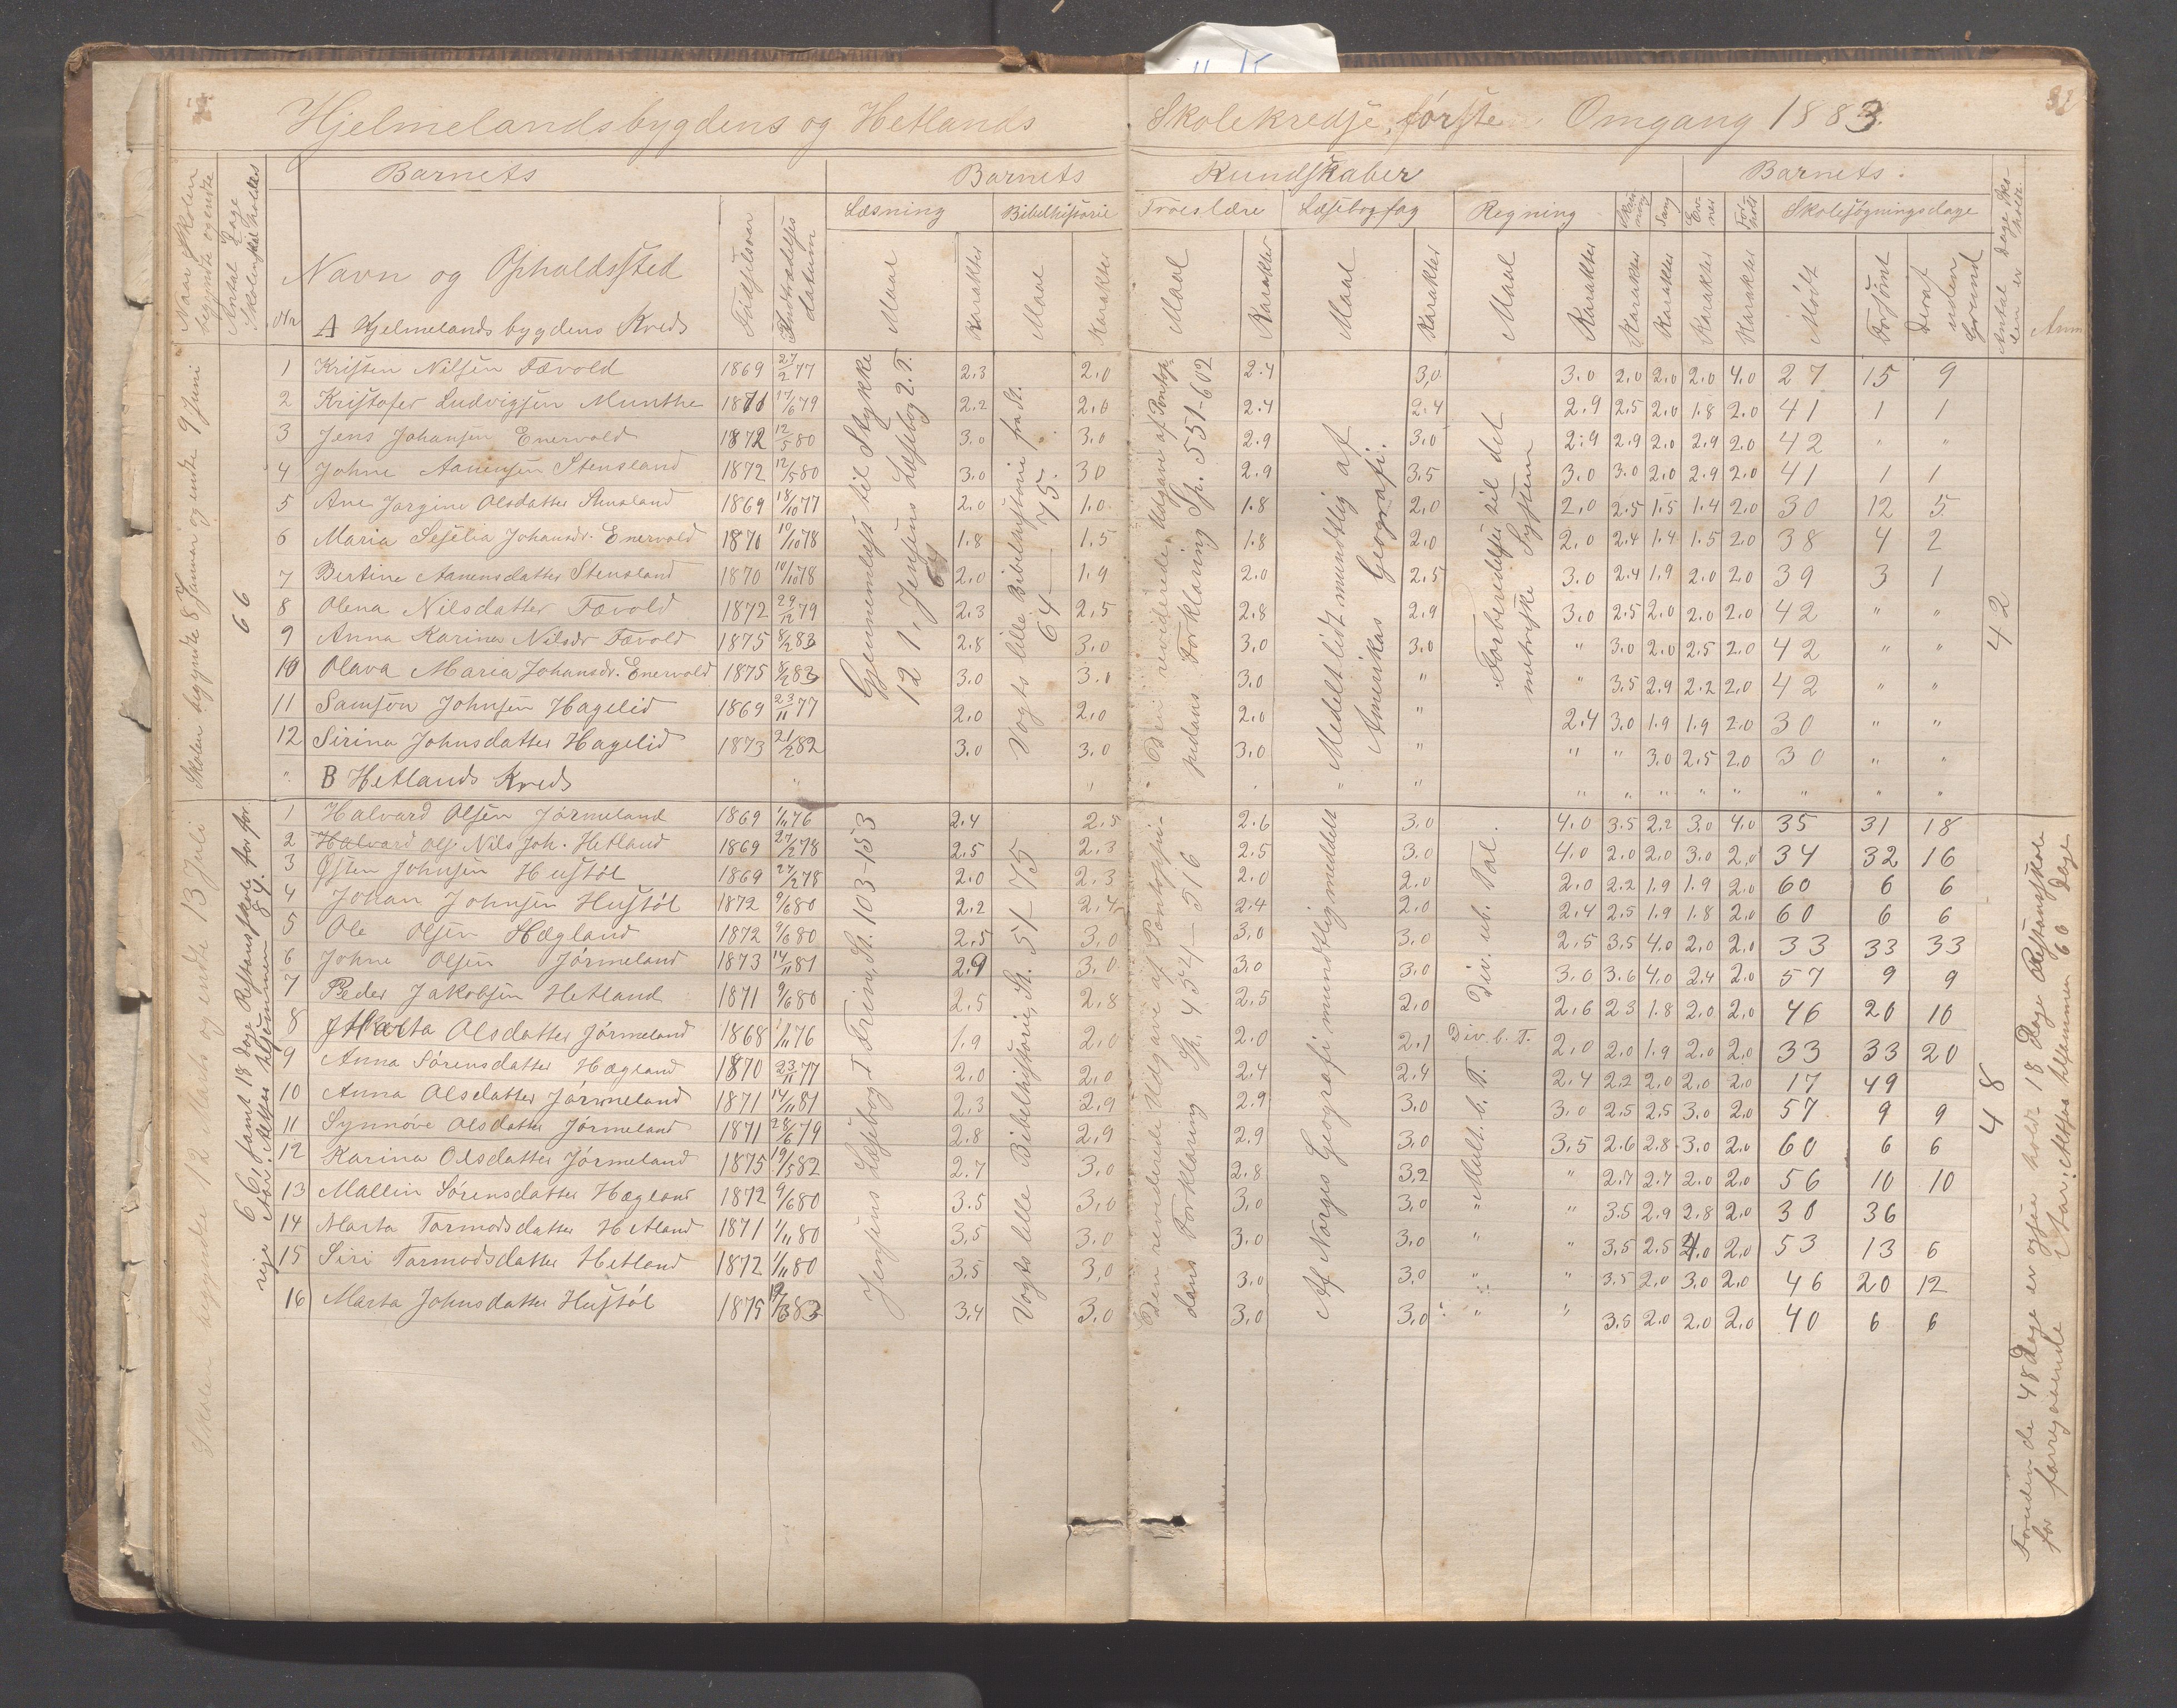 Hjelmelandsbygdens og Hetlands Skolekredse, første Omgang 1883.
Naar Skolen begyndte og endte
Antal Dage Skolen skal holdes
Barnets
Barnets Kundskaber
Barnets
Nr
Navn og Opholdssted
Fødselsaar
Indtrædelses datum
Læsning
Bibelhistorie
Troeslære
Læsebogfag
Regning
Skrivning
Sang
Evner
Forhold
Skolesøgningsdage
Antal Dage Skolen er holdt
Anm
Maal Karakter Maal Karakter Maal Karakter Maal Karakter Maal Karakter Karakter Karakter Karakter Karakter Mødt Forsømt Deraf uden Grund
A Hjelmelandsbygdens Kreds
1 Kristen Nilsen Tævold 1869 27/2 77 2.3 2.0 2.4 3,0 3.0 2.0 2.0 2.0 4.0 27 15 9
2 Kristofer Ludvigsen Munthe 1870 17/6 79 2.2 2.0 2.4 2.4 2.9 2.5 2.0 1.8 2.0 41 1 1
3 Jens Johansen Enervold 1872 12/5 80 3.0 3.0 2.9 3.0 2.9 2.9 2.0 2.9 2.0 42 " "
4 Johne Aanensen Stensland 1872 12/5 80 3.0 30 2.9 3.5 3.0 3.0 2.0 2.9 2.0 41 1 1
5 Ane Jorgine Olsdatter Stensland 1869 18/10 77 2.0 1.0 1.8 2,0 2,0 2.5 1.5 1.4 2.0 30 12 5
6 Maria Seselia Johansdr. Enervold 1870 10/10 78 1.8 1.5 1.8 2.0 2.0 2.4 1.4 1.5 2.0 38 4 2
7 Bertine Aanensdatter Stensland 1870 10/10 78 2.0 1.9 2.0 2.5 3.0 2.4 1.9 2.0 2.0 39 3 1
8 Olena Nilsdatter Tævold 1872 29/12 79 2.3 2.5 2.8 2.9 3.0 2.5 2.0 2.0 2.0 42 " "
9 Anna Karine Nilsdr Tævold 1875 8/2 83 2.8 3.0 3.0 3.0 " 3.0 2.0 2.5 2.0 42 " "
10 Olava Maria Johansdr. Enervold 1875 8/2 83 3.0 3.0 3.0 " " 3.5 2.9 2.2 2.0 42 " "
11 Samson Johnsen Hagelid 1869 23/11 77 2.0 2.0 2.0 " 2.4 3.0 1.9 1.9 2.0 30 " "
12 Sirina Johnsdatter Hagelid 1873 21/2 82 3.0 3.0 3.0 " " " 3.0 2.5 2.0 30 " "
Skolen begyndte 8 Januar og endte 9 Juni
66
Gjennemlæst til Stykke 121, Jensens Læsebog 2. T.
Vogts lille Bibelhistorie fra St. 64 – 75.
Den reviderede Udgave af Pontoppidans Forklaring Sp. 551-602
Meddelt lidt mundtlig af Amerikas Geografi.
Forberedelse til det metriske System
42
B Hetlands Kreds
1 Halvard Olsen Jørmeland 1869 1/11 76 2.4 2.5 2.6 3.0 4.0 3.5 2.2 3.0 4.0 35 31 18
2 Halvard Ols Nils Joh. Hetland 1869 27/2 78 2.5 2.3 2.5 3.0 4.0 2.0 2.0 3.0 2.0 34 32 16
3 Østen Johnsen Hustøl 1869 27/2 78 2.0 2.3 2.0 2.0 2.0 2.2 1.9 1.9 2.0 60 6 6
4 Johan Johnsen Hustøl 1872 9/6 80 2.2 2.4 2.4 2.0 2.4 2.5 1.9 1.8 2.0 60 6 6
5 Ole Olsen Hægland 1872 9/6 80 2.5 3.0 3,0 3.0 2.5 3.5 4.0 2.0 2.0 33 33 33
6 Johne Olsen Jørmeland 1873 14/11 81 2.9 3.0 3.0 3.0 3.0 3.6 4.0 2.4 2.0 57 9 9
7 Peder Jakobsen Hetland 1871 9/6 80 2.5 2.8 2.5 2.0 2.6 23 1.8 2.0 2.0 46 20 10
8 Marta Olsdatter Jørmeland 1868 1/11 76 1.9 2.0 2.0 2.1 Div. b. T. 2.0 2.0 1.9 2.0 2.0 33 33 20
9 Anna Sørensdatter Hægland 1870 23/11 77 2.0 2.0 2.4 2.4 2.4 2.2 2.0 2.0 2.0 17 49
10 Anna Olsdatter Jørmeland 1871 14/11 81 2.3 2.9 2.9 3.0 3.0 2.5 2.5 3.0 2.0 57 9 9
11 Synnøve Olsdatter Jørmeland 1871 28/6 79 2.8 2.9 2.9 3.0 3.5 2.6 2.8 3.0 2.0 60 6 6
12 Karina Olsdatter Jørmeland 1875 19/5 82 2.7 3.0 2.8 3.2 " 2.7 2.7 2.0 2.0 56 10 10
13 Mallin Sørensdatter Hægland 1872 9/6 80 3.5 3,0 3.0 3.0 " " 3.5 2.9 2.8 2.0 30 36
14 Marta Tormodsdatter Hetland 1871 1/11 80 3.5 3.0 3.0 3.0 " " 3.5 2.5 4.0 2.0 53 13 6
15 Siri Tormodsdatter Hetland 1872 1/11 80 3.5 3,0 3.0 3.0 " " 3.5 2.0 3.0 2.0 46 20 12
16 Marta Johnsdatter Hustøl 1875 3.4 3.0 3.0 3.0 " " 3.5 2.0 2.0 2.0 40 6 6
Skolen begyndte 12 Marts og endte 13 Juli
66 samt 18 Dage Restansskole for forrige Aar. Altsaa tilsammen 84.
Jensens Læsebog I Trin, St. 103-153
Vogts lille Bibelhistorie, St. 51-75
Den reviderede Udgave af Pontoppidans Forklaring Sp. 454-516
Af Norges Geografi mundtlig meddelt
Div. ub. Tal.
Mult. b. T.
48
Foruden de 48 Dage er ogsaa holdt 18 Dage Restansskole
for forregaaende Aar. Altsaa tilsammen 60 Dage